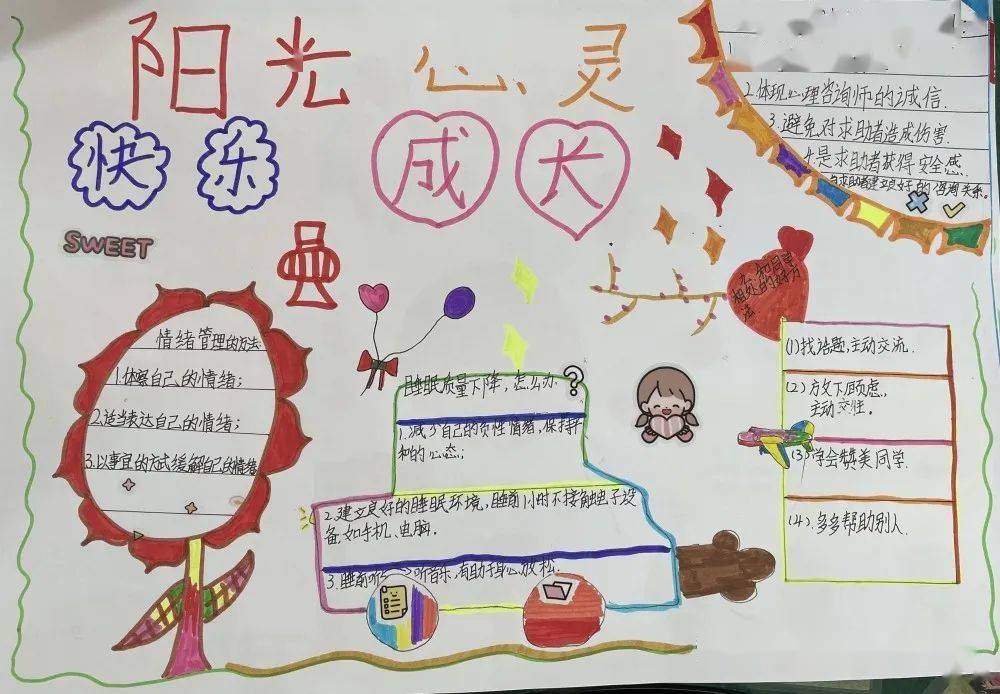 阳光心灵
快乐成长
2.体现心理咨询师的诚信.
3.避免对求助者造成伤害
4.是求助者获得安全感.
与求助者建立良好的咨询关系。
SWEET
情绪管理的方法:
1.体察自己的情绪;
2.适当表达自己的情绪;
3.以事宜的方式缓解自己的情绪
睡眠质量下降,怎么办?
1.减少自己的负性情绪,保持平
和的心态;
2.建立良好的睡眠环境,睡前1小时不接触电子设
备,如手机、电脑。
3.睡前听一听音乐,有助于身心放松.
和同学
相处的好方
法
(1)找话题,主动交流.
(2)放下顾虑,
主动交往。
(3)学会赞美同学.
(4).多多帮助别人